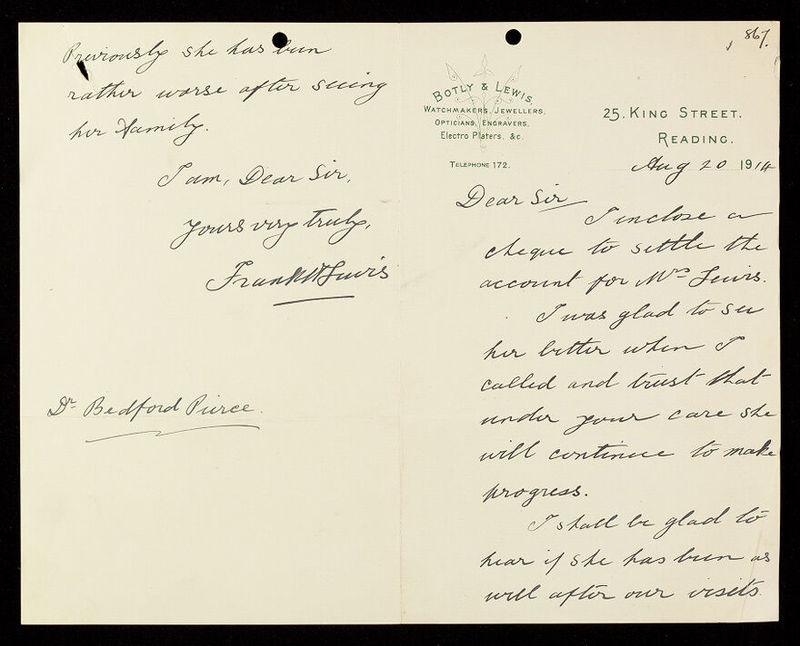 1 867.
BOTLY & LEWIS,
WATCHMAKERS, JEWELLERS,
OPTICIANS, ENGRAVERS,
Electro Platers, &c.
TELEPHONE 172.
25, KING STREET.
READING.
Aug 20 1914
Dear Sir
I inclose a
cheque to settle the
account for Mrs Lewis.
I was glad to see
her better when I
called and trust that
under your care she
will continue to make
progress.
I shall be glad to
hear if she has been as
well after our visits.
Previously she has been
rather worse after seeing
her family.
I am, Dear Sir,
Yours very truly,
Frank W Lewis
Dr Bedford Pierce.